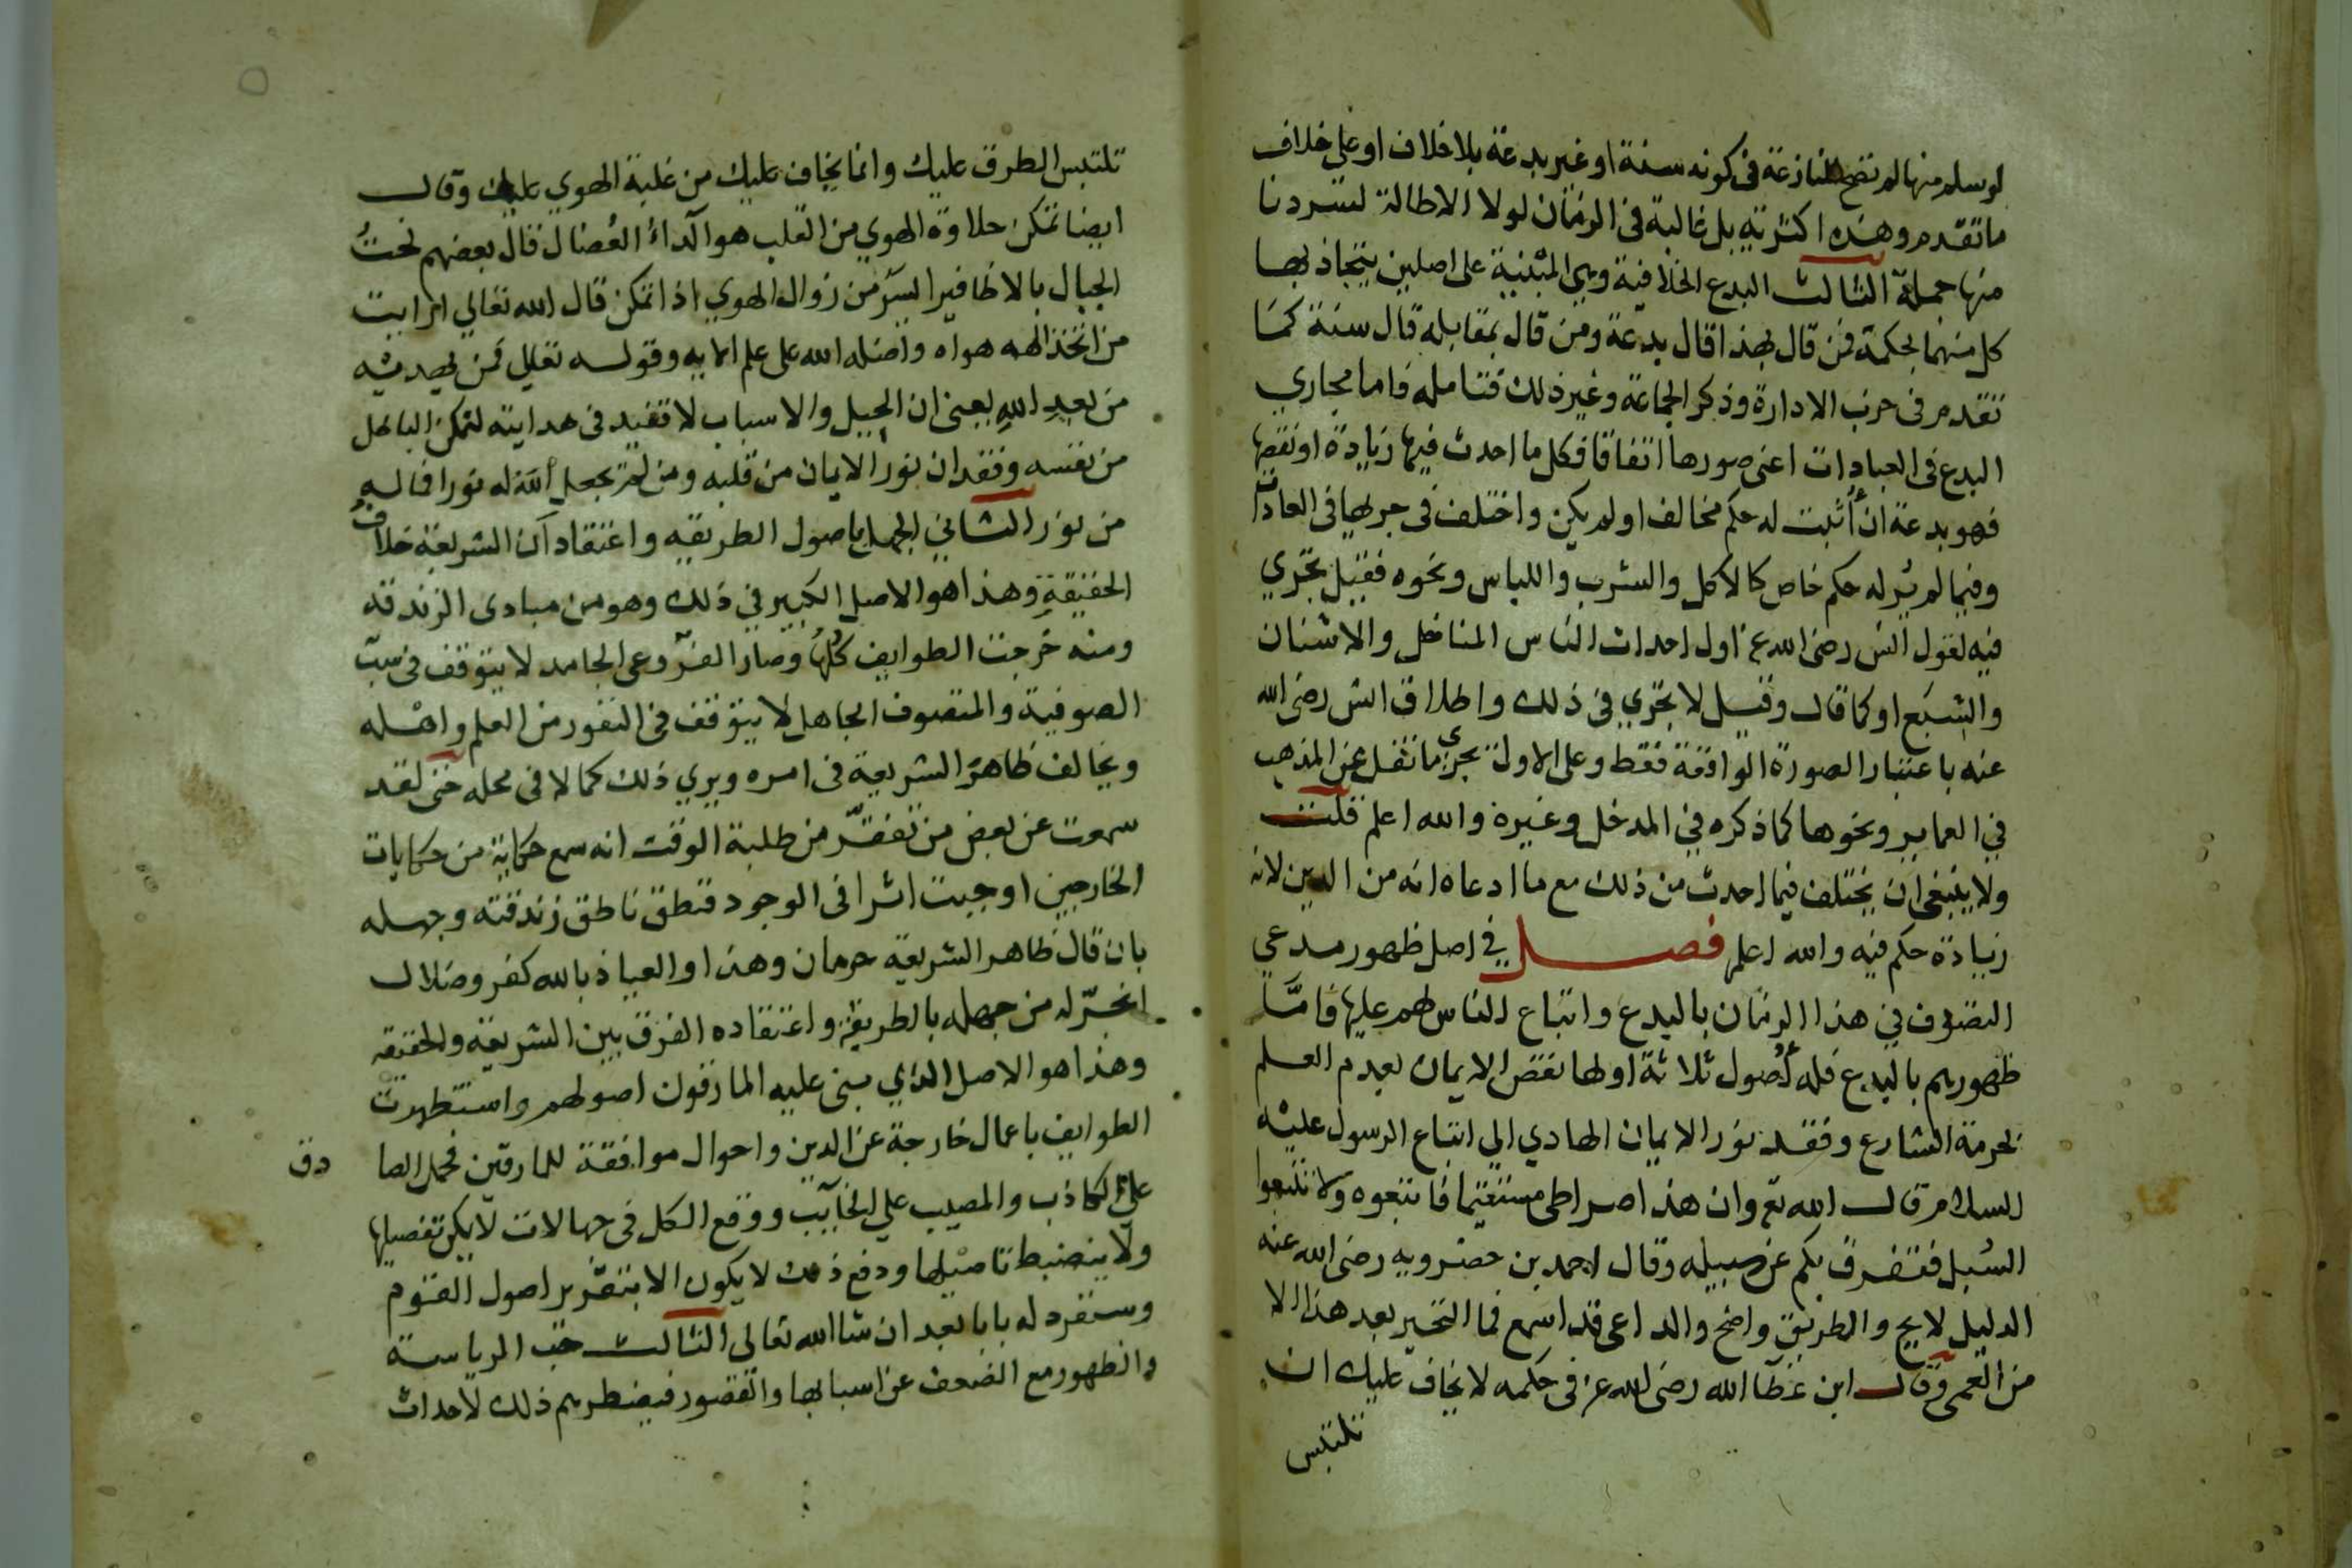 لو سلم منها لم تصح المنازعة فى كونه سنة او غير بدعة بلا خلاف او على خلاف
ما تقدم وهذه اكثرية بل غالبة فى الزمان لولا الاطالة لسردنا
منها جملة الثالث البدع الخلافية وهي المبنية على اصلين يتجاذبها
كل منهما بحكمة فمن قال بهذا قال بدعة ومن قال بمقابله قال سنة كما
تقدم فى حزب الادارة وذكر الجماعة وغير ذلك فتامله فاما مجاري
البدع فى العبادات اعنى صورها اتفاقا فكل ما احدث فيها زيادة او نقصها
فهو بدعة ان أثبت له حكم مخالف او لم يكن واختلف فى جريها فى العادات
وفيما لم ير له حكم خاص كالاكل والشرب واللباس ونحوه فقيل تجري
فيه لقول انس رضى الله عنه اول احداث الناس المناخل والاشنان
والشبع او كما قال وقيل لا تجري فى ذلك واطلاق انس رضى الله
عنه باعتبار الصورة الواقعة فقط وعلى الاولة يجري ما نقل عن المذهب
في العمايم ونحوها كما ذكره في المدخل وغيره والله اعلم قلت
ولا ينبغي ان يختلف فيما احدث من ذلك مع ما ادعاه انه من الدين لانه
زيادة حكم فيه والله اعلم فصل في اصل ظهور مدعي
التصوف في هذا الزمان بالبدع واتباع الناس لهم عليها فامّا
ظهورهم بالبدع فله أصول ثلاثة اولها نقص الايمان بعدم العلم
بحرمة الشارع وفقد نور الايمان الهادي الى اتباع الرسول عليه
السلام قال الله تع وان هذا صراطى مستقيما فاتبعوه ولا تتبعوا
السبل فتفرق بكم عن سبيله وقال احمد بن حضرويه رضى الله عنه
الدليل لايح والطريق واضح والداعى قد اسمع فما التحير بعد هذا الا
من العمى وقال ابن عطا الله رضى الله عنه فى حكمه لا يخاف عليك ان
تلتبس
تلتبس الطرق عليك وانما يخاف عليك من غلبة الهوي عليك وقال
ايضا تمكن حلاوة الهوي من القلب هو الداء العُضال قال بعضهم نحتُ
الجبال بالاظافير ايسر من زوال الهوي اذا تمكن قال الله تعالي افرايت
من اتخذ الهه هواه واضله الله على علم الايه وقوله تعالي فمن يهديه
من بعد الله يعنى ان الحيل والاسباب لا تفيد فى هدايته لتمكن الباطل
من نفسه وفقدان نور الايمان من قلبه ومن لم يجعل الله له نورا فما له
من نور الثاني الجهل باصول الطريقه واعتقاد ان الشريعة خلاف
الحقيقة وهذا هو الاصل الكبير في ذلك وهو من مبادى الزندقه
ومنه خرجت الطوايف كلها وصار الفروعى الجامد لا يتوقف فى سبّ
الصوفية والمتصوف الجاهل لا يتوقف فى النفور من العلم واهله
ويخالف ظاهر الشريعة فى امره ويري ذلك كمالا فى محله حتى لقد
سمعت عن بعض من تفقّر من طلبة الوقت انه سمع حكاية من حكايات
الخارجين اوجبت اثرا فى الوجود فنطق ناطق زندقته وجهله
بان قال ظاهر الشريعة حرمان وهذا والعياذ بالله كفر وضلال
انجرّ له من جهله بالطريقه واعتقاده الفرق بين الشريعة والحقيقه
وهذا هو الاصل الذي بنى عليه المارقون اصولهم واستظهرت
الطوايف باعمال خارجة عن الدين واحوال موافقة للمارقين فحمل الصا دق
على الكاذب والمصيب علي الخآيب ووقع الكل فى جهالات لا يمكن تفصيلها
ولا ينضبط تاصيلها ودفع ذلك لا يكون الا بتقرير اصول القوم
وسنفرد له بابا بعد ان شا الله تعالى الثالث حب الرياسة
والظهور مع الضعف عن اسبابها والقصور فيضطرهم ذلك لاحداث